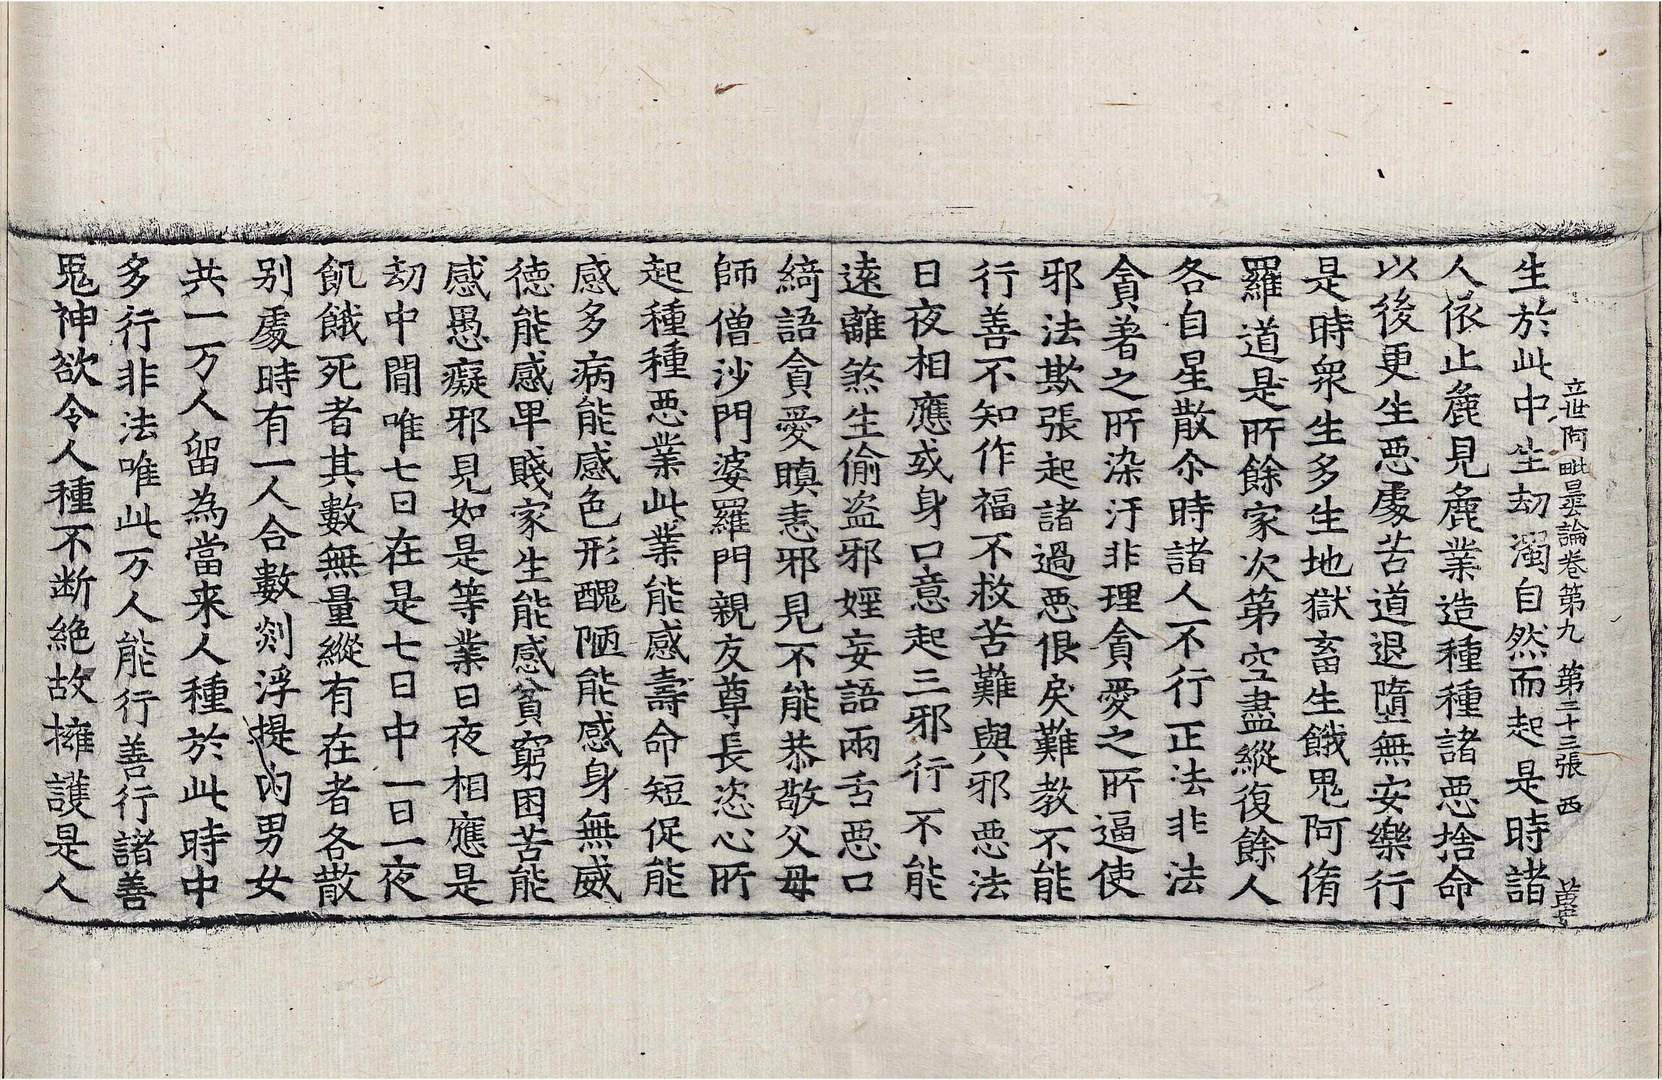 立世阿毗曇論卷第九 第二十三張 西
生於此中生劫濁自然而起是時諸
人依止麁見麁業造種種諸惡捨命
以後更生惡處苦道退墮無安樂行
是時衆生多生地獄畜生餓鬼阿脩
羅道是所餘家次第空盡縱復餘人
各自星散尒時諸人不行正法非法
貪著之所染汙非理貪愛之所逼使
邪法欺張起諸過惡佷戾難教不能
行善不知作福不救苦難與邪惡法
日夜相應或身口意起三邪行不能
遠離煞生偷盗邪婬妄語兩舌惡口
綺語貪愛瞋恚邪見不能恭敬父母
師僧沙門婆羅門親友尊長恣心所
起種種惡業此業能感壽命短促能
感多病能感色形醜陋能感身無威
德能感卑賤家生能感貧窮困苦能
感愚癡邪見如是等業日夜相應是
劫中閒唯七日在是七日中一日一夜
飢餓死者其數無量縱有在者各散
别處時有一人合數剡浮提內男女
共一万人留為當来人種於此時中
多行非法唯此万人能行善行諸善
鬼神欲令人種不断絶故擁護是人